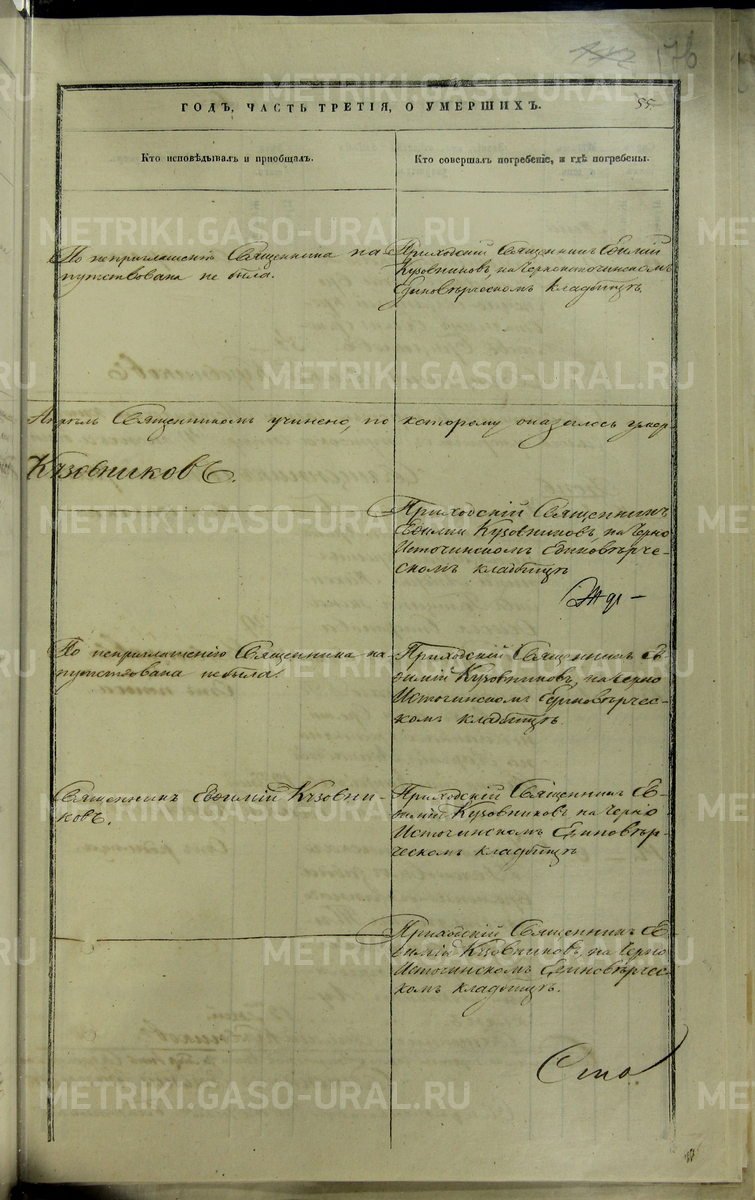 576
ГОДЪ, ЧАСТЬ ТРЕТІЯ, О УМЕРШИХЪ.
55.
Кто исповѣдывалъ и пріобщалъ.
Кто совершалъ погребеніе, и гдѣ погребены.
По неприглашенію Священника на
путствована не была.
Приходскій Священникъ Евѳимій
Кузовниковъ, на Черноисточинскомъ
Единовѣрческомъ кладбищѣ.
Священникомъ учинено, по которому оказалось умер-
Кузовниковъ.
Приходскій Священникъ
Евѳимій Кузовниковъ, на Черно
Источинскомъ Единовѣрче-
скомъ кладбищѣ
По неприглашенію Священника на-
путствована не была.
Приходскій Священникъ Ев-
ѳимій Кузовниковъ, на Черно
Источинскомъ Единовѣрчес-
комъ кладбищѣ.
Священникъ Евѳимій Кузовни-
ковъ.
Приходскій Священникъ Ев-
ѳимій Кузовниковъ на Черно
Источинскомъ Единовѣр-
ческомъ кладбищѣ
Приходскій Священникъ Ев-
ѳимій Кузовниковъ, на Черно
Источинскомъ Единовѣрчес-
комъ кладбищѣ.
METRIKI.GASO-URAL.RU